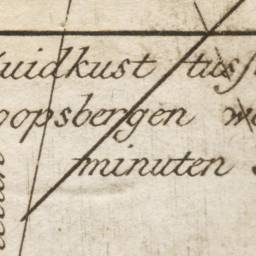 uidkust tuss
oopsbergen wa
minuten